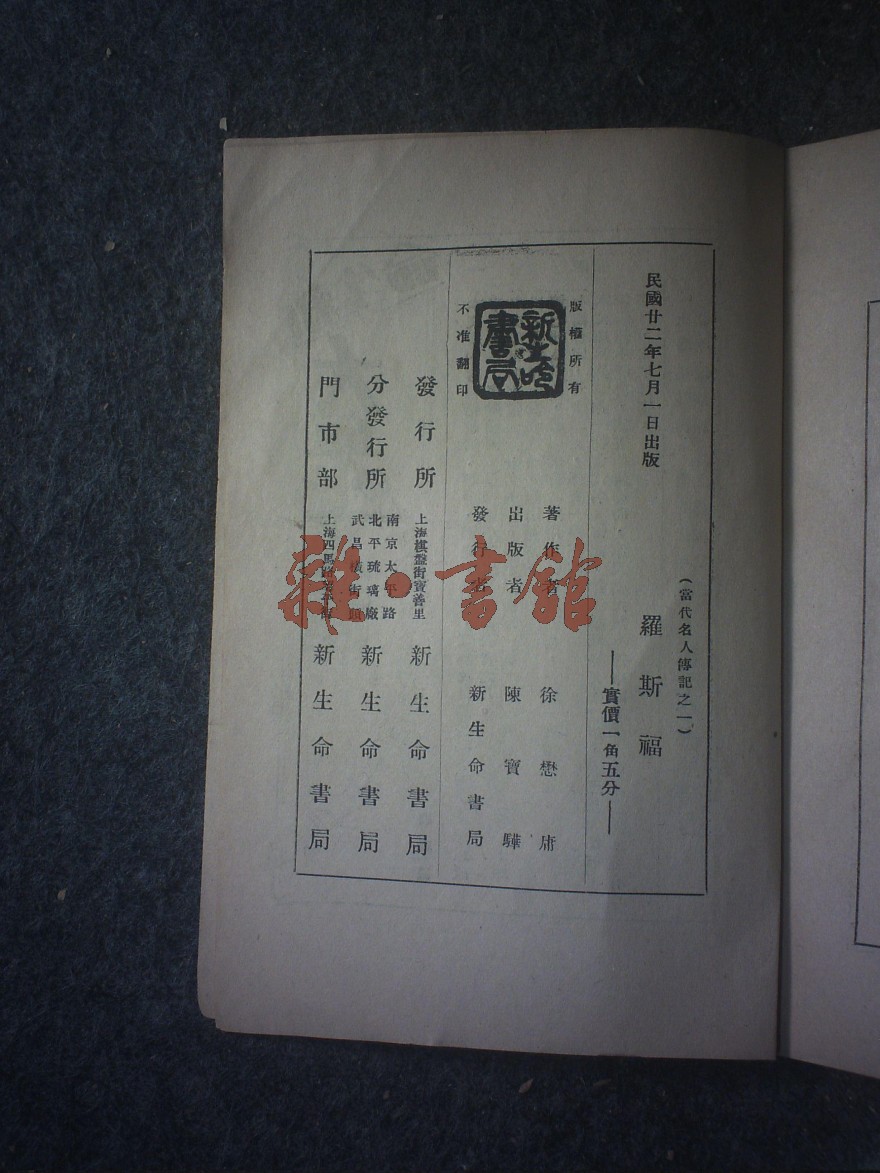 民國廿二年七月一日出版
(當代名人傳記之一)
羅斯福
——實價一角五分——
版權所有
新生命書局
不准翻印
著作者 徐懋庸
出版者 陳寶驊
發行者 新生命書局
發行所 上海棋盤街寶善里 新生命書局
分發行所 南京太平路 北平琉璃廠 武昌橫街頭 新生命書局
門市部 上海四馬路 新生命書局
雜·書館